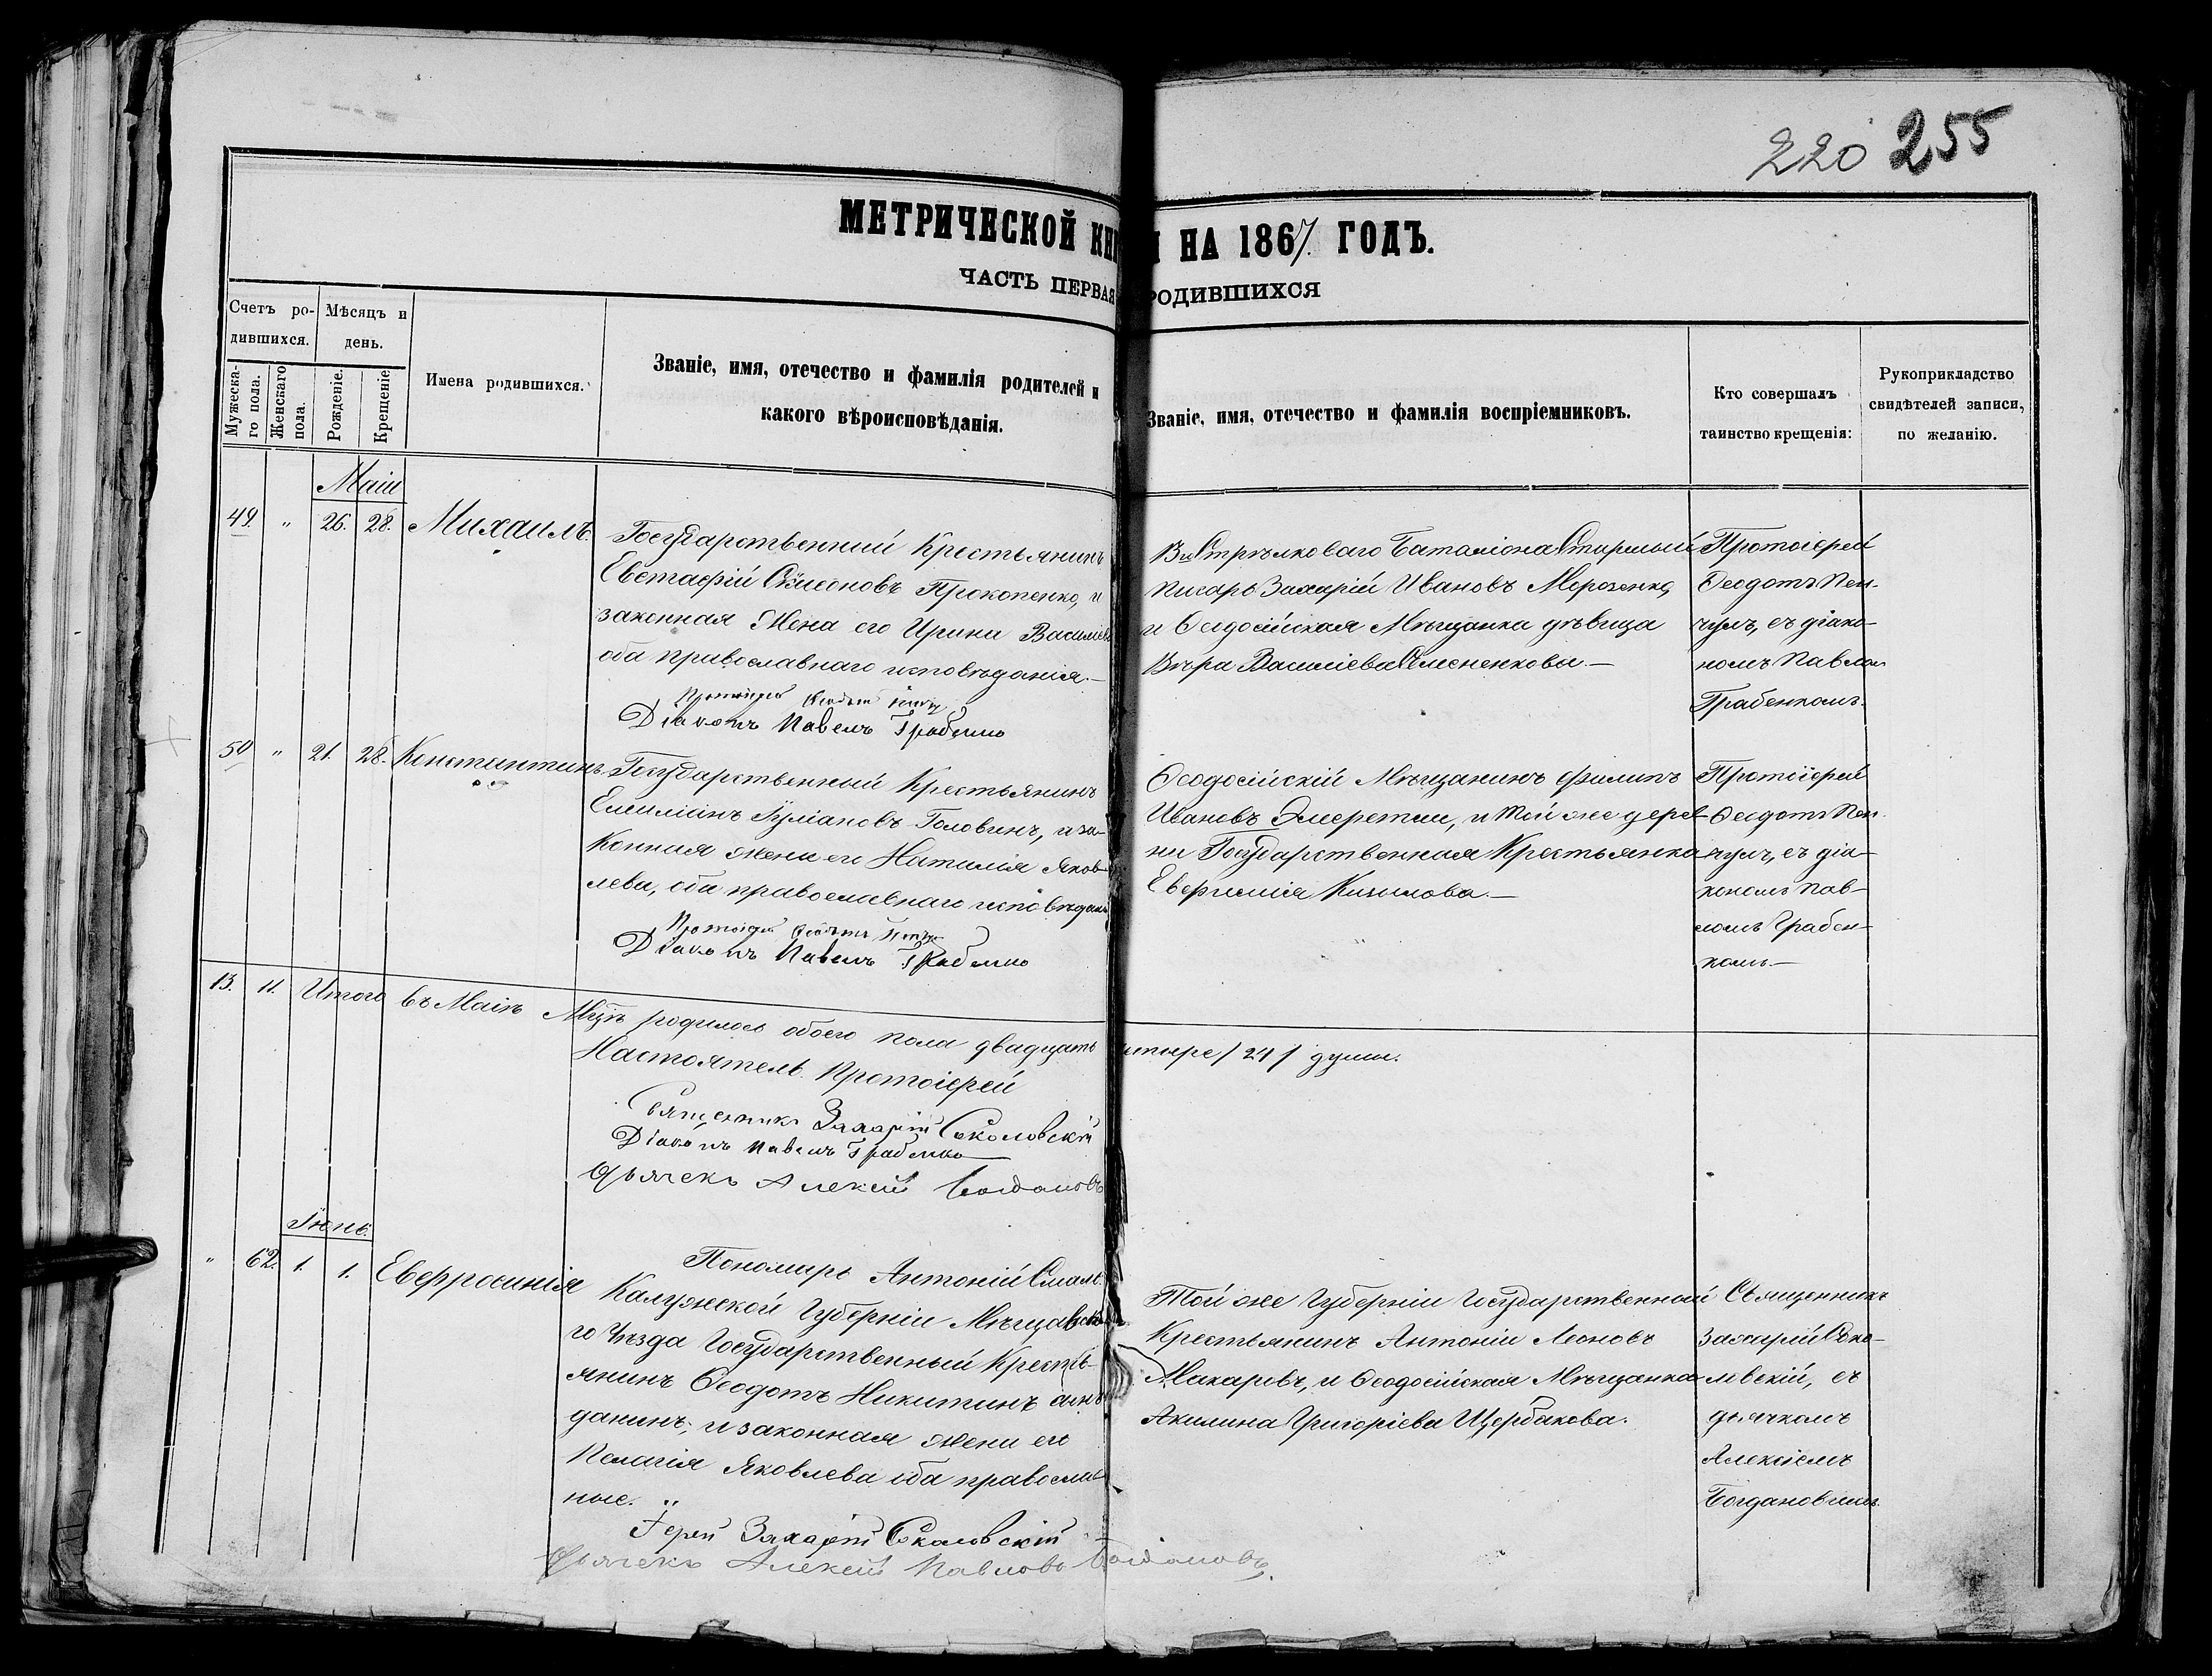 220 255
МЕТРИЧЕСКОЙ КНИ И НА 1867. ГОДЪ.
ЧАСТЬ ПЕРВАЯ РОДИВШИХСЯ
Счетъ ро-
дившихся.
Мѣсяцъ и
день.
Мужеска-
го пола.
Женскаго
пола.
Рожденіе.
Крещеніе
Имена родившихся.
Званіе, имя, отечество и фамилія родителей и
какого вѣроисповѣданія.
Званіе, имя, отечество и фамилія воспріемниковъ.
Кто совершалъ
таинство крещенія:
Рукоприкладство
свидѣтелей записи,
по желанію.
Маій
49. " 26. 28. Михаилъ.
Государственный Крестьянинъ
Евстафій Сѵмеоновъ Прокопенко, и
законная Жена его Ирина Василіева
оба православнаго исповѣданія.—
Протоіерей Ѳеодотъ
Діаконъ Павелъ Грабенко
Стрѣлковаго Баталіона Старшый
писарь Захарій Ивановъ Морозенко,
и Ѳеодосійская Мѣщанка дѣвица
Вѣра Василіева —
Протоіерей
Ѳеодотъ
съ діако-
номъ Павлом
Грабенкомъ.
50 " 21. 28. Константинъ.
Государственный Крестьянинъ
Емиліанъ Іуліановъ Головинъ, и за-
конная жена его Наталія Яков-
лева, оба православнаго исповѣдан
Протоіерей Ѳеодотъ
Діаконъ Павелъ Грабенко
Ѳеодосійскій Мѣщанинъ Филипъ
Ивановъ Эмеретли, и той же дерев-
ни Государственная Крестьянка
Евфимія Кизилова.—
Протоіерей
Ѳеодотъ
съ діа-
кономъ Пав-
ломъ Грабен-
комъ.—
13. 11. Итого въ Маіѣ Мцѣ родилось обоего пола двадцать четыре / 24 / души.
Настоятель Протоіерей
Священникъ Захарій Соколовскій
Діаконъ Павелъ Грабенко
Дьячекъ Алексій Богдановъ
Іюнь.
" 62. 1. 1. Евфросинія
Пономарь Антоній
Калужской Губерніи Мѣщовска
го Уѣзда Государственный Кресть-
янинъ Ѳеодотъ Никитинъ
данинъ; и законная жена его
Пелагія Яковлева оба православ
ные. "
Іерей Захарій Соколовскій
Дьячекъ Алексій Павловъ Богдановъ.
Той же Губерніи Государственный
Крестьянинъ Антоній Леоновъ
Макаровъ, и Ѳеодосійская Мѣщанка
Акилина Григоріева Щербакова.
Священникъ
Захарій Соко-
ловскій, съ
дьячкомъ
Алексіемъ
Богдановымъ.